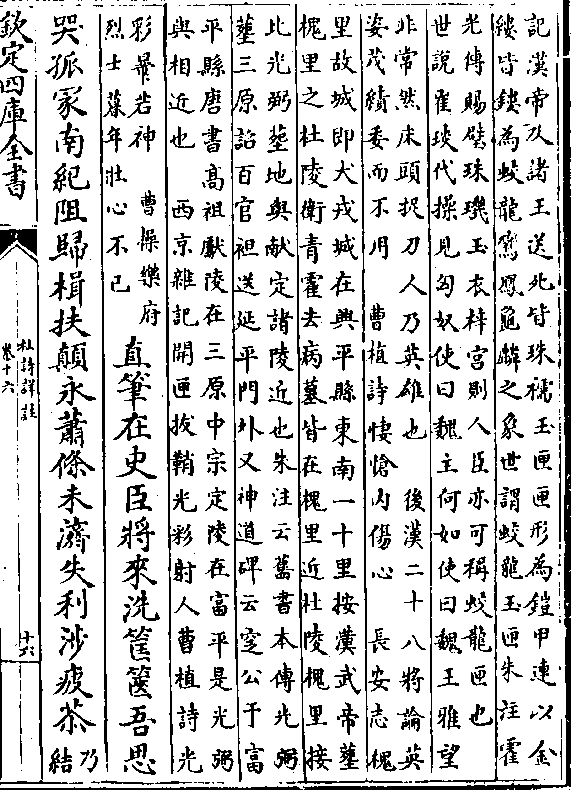 記漢帝及諸王送死皆珠襦玉匣匣形為鎧甲連以金
縷皆鏤為蛟龍鸞鳳龜麟之象世謂蛟龍玉匣朱注霍
光傳賜璧珠璣玉衣梓宫則人臣亦可稱蛟龍匣也
世說崔琰代操見匈奴使曰魏主何如使曰魏王雅望
非常然床頭捉刀人乃英雄也 後漢二十八將論英
姿茂績委而不用 曹植詩悽愴内傷心 長安志槐
里故城即犬戎城在興平縣東南一十里按漢武帝塋
槐里之杜陵衛青霍去病墓皆在槐里近杜陵槐里接
比光弼塋地與獻定諸陵近也朱注云舊書本傳光弼
塟三原詔百官祖送延平門外又神道碑云窆公于富
平縣唐書高祖獻陵在三原中宗定陵在富平是光弼
與相近也 西京雜記開匣拔鞘光彩射人曹植詩光
彩曅若神 曹操樂府
烈士暮年壯心不已
直筆在史臣將來洗筐篋吾思
哭孤冢南紀阻歸楫扶顛永蕭條未濟失利涉疲苶
乃
結
欽定四庫全書
杜詩詳註
卷十六
十六